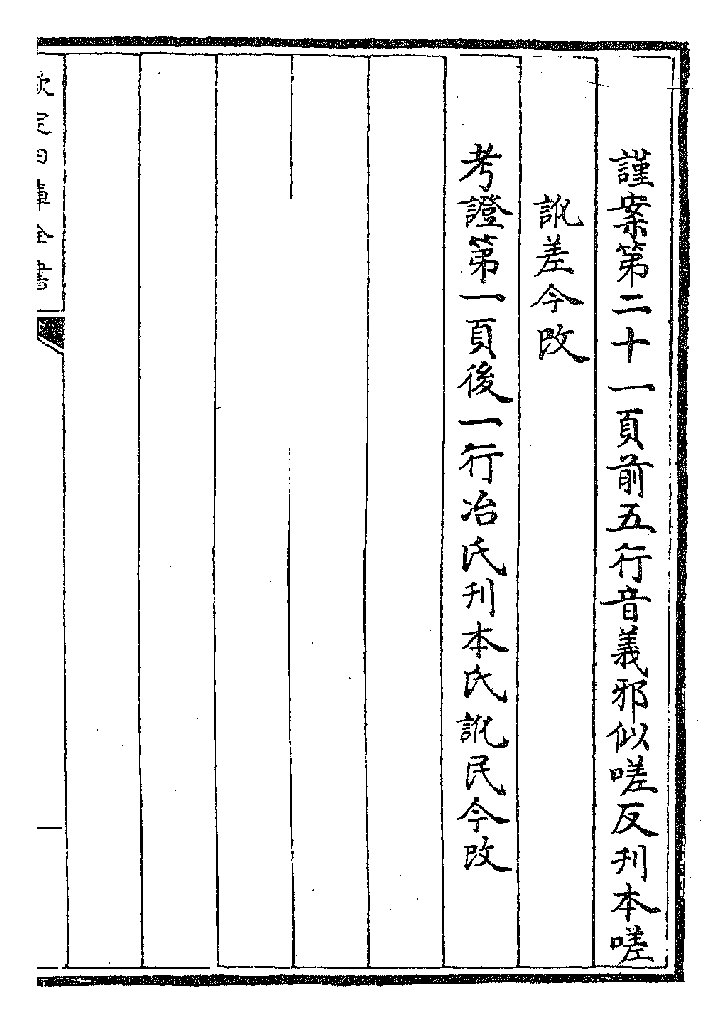 謹案第二十一頁前五行音義邪似嗟反刊本嗟
訛差今改
考證第一頁後一行冶氏刊本氏訛民今改
欽定四庫全書